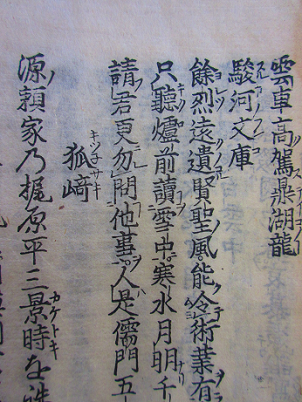 雲車高駕鼎湖龍
駿河文庫
餘烈遠遺賢聖風能令術業有
只聽爐前讀雪中寒水月明千
請君更勿問他事人是儒門五
狐﨑
源頼家乃梶原平三景時を